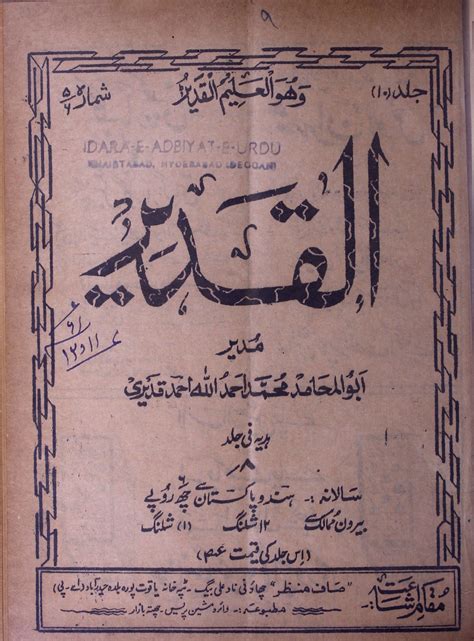 ۹
جلد (۱۰) وَھُوَ الْعَلِیْمُ الْقَدِیْرُ شمارہ ۵/۶
IDARA-E-ADBIYAT-E-URDU
KHAIRTABAD, HYDERABAD (DECCAN)
القدیر
مُدیر
ابوالمحامد محمد احمد اللہ احمد قدیری
ہدیہ فی جلد
۸/
سالانہ :۔ ہند و پاکستان سے چھ روپے
بیرون ممالک سے ۱۲ شلنگ (۱) شلنگ
(اِس جلد کی قیمت
مقام اشاعت
"صاف منظر" چھاؤنی ناد علی بیگ۔ یاقوت پورہ بلدہ حیدرآباد
مطبوعہ :۔ دائرہ مشین پریس۔ چھتہ بازار